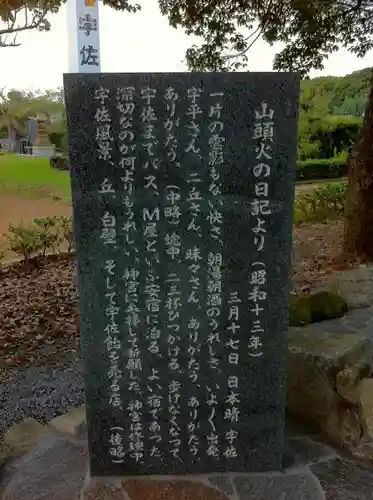 宇佐
山頭火の日記より（昭和十三年）
三月十七日　日本晴、宇佐
一片の雲影もない快さ、朝湯朝酒のうれしさ、いよく出發
宇平さん、二丘さん、昧々さん、ありがたう、ありがたう、
ありがたう、（中略）途中、二三杯ひつかける、歩けなくなつて
宇佐までバス、Ｍ屋といふ安宿に泊る、よい宿であつた
深切なのが何よりもうれしい、神宮に參拝して祈願した、神宮は
宇佐風景、丘、白壁、そして宇佐飴を売る店、（後略）